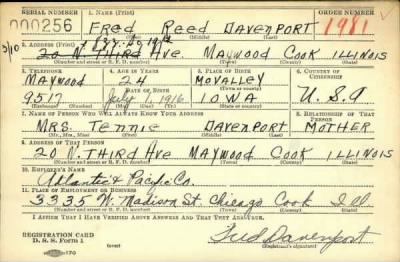 SERIAL NUMBER 1. NAME (Print) ORDER NUMBER
000256 FRED REED DAVENPORT 1981
(First) (Middle) (Last)
2. ADDRESS (Print)
20 N. THIRD AVE. MAYWOOD COOK ILLINOIS
(Number and street or R. F. D. number) (Town) (County) (State)
3. TELEPHONE 4. AGE IN YEARS 5. PLACE OF BIRTH 6. COUNTRY OF CITIZENSHIP
MAYWOOD 24 MOVALLEY
DATE OF BIRTH (Town or county)
9517 July 1 1916 IOWA U.S.A
(Exchange) (Number) (Mo.) (Day) (Yr.) (State or country)
7. NAME OF PERSON WHO WILL ALWAYS KNOW YOUR ADDRESS 8. RELATIONSHIP OF THAT PERSON
MRS. TENNIE DAVENPORT MOTHER
(Mr., Mrs., Miss) (First) (Middle) (Last)
9. ADDRESS OF THAT PERSON
20 N. THIRD AVE MAYWOOD COOK ILLINOIS
(Number and street or R. F. D. number) (Town) (County) (State)
10. EMPLOYER'S NAME
Atlantic & Pacific Co.
11. PLACE OF EMPLOYMENT OR BUSINESS
3335 W. Madison St. Chicago Cook Ill.
(Number and street or R. F. D. number) (Town) (County) (State)
I AFFIRM THAT I HAVE VERIFIED ABOVE ANSWERS AND THAT THEY ARE TRUE.
REGISTRATION CARD Fred Davenport
D. S. S. FORM 1 (over) (Registrant's signature)